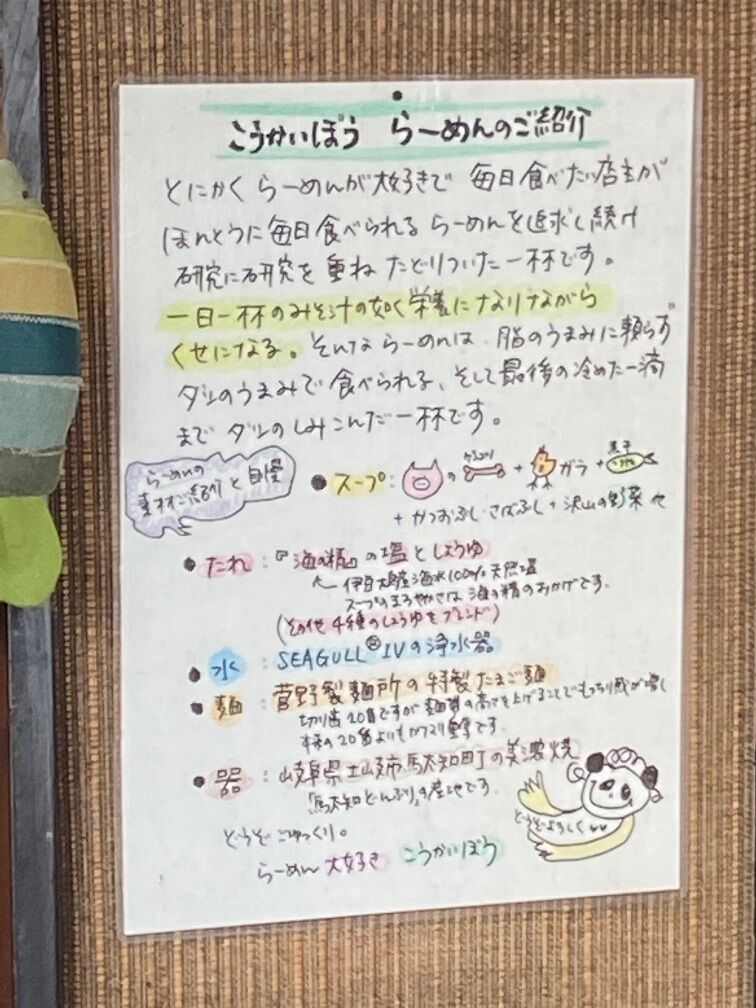 こうかいぼう らーめんのご紹介
とにかく らーめんが大好きで 毎日食べたい店主が
ほんとうに毎日食べられる らーめんを追求し続け
研究に研究を重ね たどりついた一杯です。
一日一杯のみそ汁の如く栄養になりながら
くせになる。そんな らーめんは 脂のうまみに頼らず
ダシのうまみで食べられる、そして最後の冷めた一滴
まで ダシのしみこんだ一杯です。
らーめんの
素材ご紹介と自慢
●スープ: の ゲンコツ + ガラ + 煮干
+ かつおぶし・さばぶし + 沢山の野菜
●たれ:『海の精』の塩としょうゆ
← 伊豆大島産海水100% 天然塩
スープのまろやかさは 海の精のおかげです。
(その他 4種のしょうゆをブレンド)
●水:SEAGULL® IVの浄水器
●麺:菅野製麺所の特製たまご麺
切り歯20番ですが 麺の高さを上げることでもっちり感が
の20番よりも です。
●器:岐阜県土岐市駄知町の美濃焼
「駄知どんぶり」の産地です
どうぞ ごゆっくり。
どうぞよろしく
らーめん大好き こうかいぼう